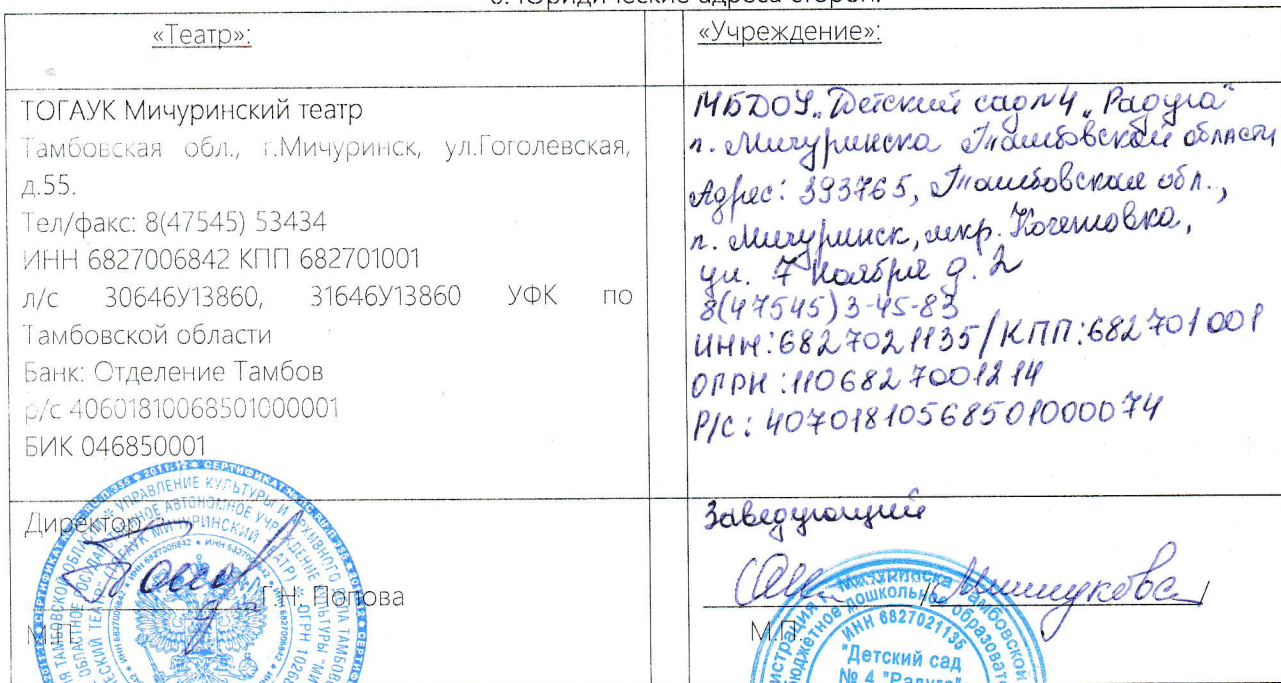 6. Юридические адреса сторон:
«Театр»:
ТОГАУК Мичуринский театр
Тамбовская обл., г.Мичуринск, ул.Гоголевская,
д.55.
Тел/факс: 8(47545) 53434
ИНН 6827006842 КПП 682701001
л/с 30646У13860, 31646У13860 УФК по
Тамбовской области
Банк: Отделение Тамбов
р/с 40601810068501000001
БИК 046850001
Директор
Г.Н. Попова
М.П.
«Учреждение»:
МБДОУ „Детский сад №4 „Радуга"
г. Мичуринска Тамбовской области
Адрес: 393765, Тамбовская обл.,
г. Мичуринск, мкр. Кочетовка,
ул. 7 Ноября д. 2
8(47545)3-45-83
ИНН:6827021135/КПП:682701001
ОГРН:1106827001214
Р/С: 40701810568501000074
Заведующий
/Мишукова/
М.П.
ИНН 6827021135
"Детский сад
№ 4 "Радуга"